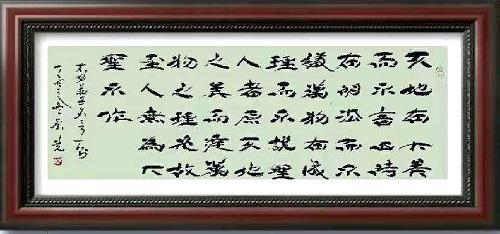 天地有大美
而不言四時
有明法而不
議萬物有成
理而不說聖
人者原天地
之美而達萬
物之理是故
至人無為大
聖不作